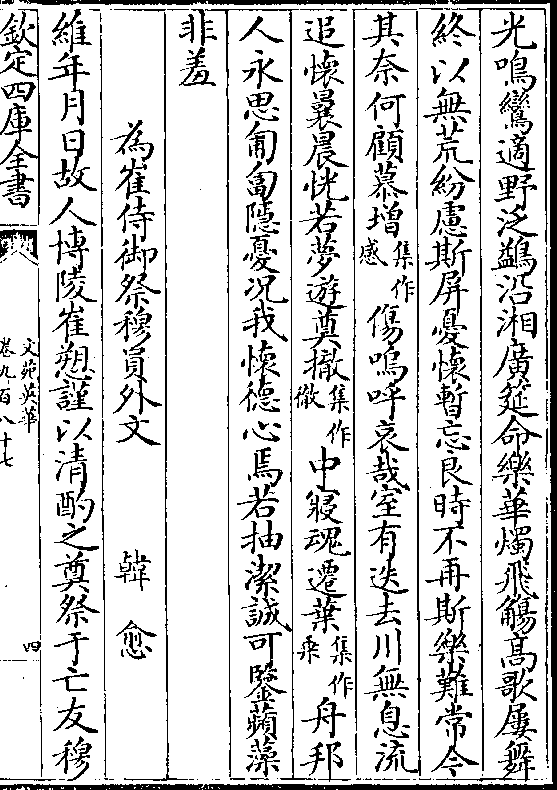 光鳴鸞適野泛鷁沿湘廣筵命樂華燭飛觴髙歌屢舞
終以無荒紛慮斯屏憂懷暫忘良時不再斯樂難常今
其奈何顧慕增集作感傷嗚呼哀哉室有迭去川無息流
追懷曩晨恍若夢遊奠撤集作徹中寢魂遷葉集作乘舟邦
人永思匍匐隱憂况我懷德心焉若抽潔誠可鑒蘋藻
非羞
為崔侍御祭穆員外文 韓愈
維年月日故人博陵崔愬謹以清酌之奠祭于亡友穆
欽定四庫全書
文苑英華
卷九百八十七
四